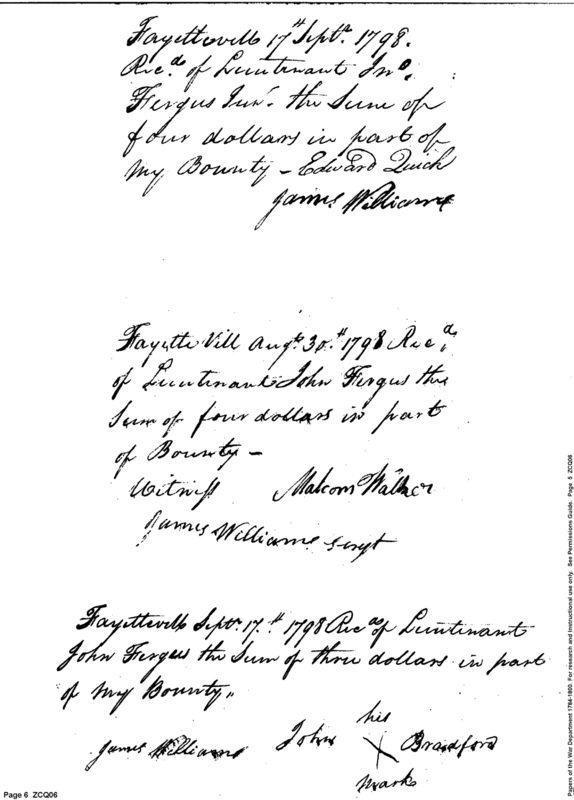 Fayettevill 17th Septr. 1798.
Rec.d of Lieutenant Jno.
Fergus Junr. the Sum of
four dollars in part of
my Bounty – Edward Quick
James Williams
Fayette Vill Augt. 30th 1798 Recd.
of Lieutenant John Fergus the
Sum of four dollars in part
of Bounty –
Witness Malcom Walker
James Williams Sergt
Fayettevill Septr. 17th. 1798 Recd of Lieutenant
John Fergus the Sum of three dollars in part
of my Bounty,,
his
James Williams John X Bradford
mark
Page 6 ZCQ06
Papers of the War Department 1784-1800. For research and instructional use only. See Permissions Guide. Page 6 ZCQ06